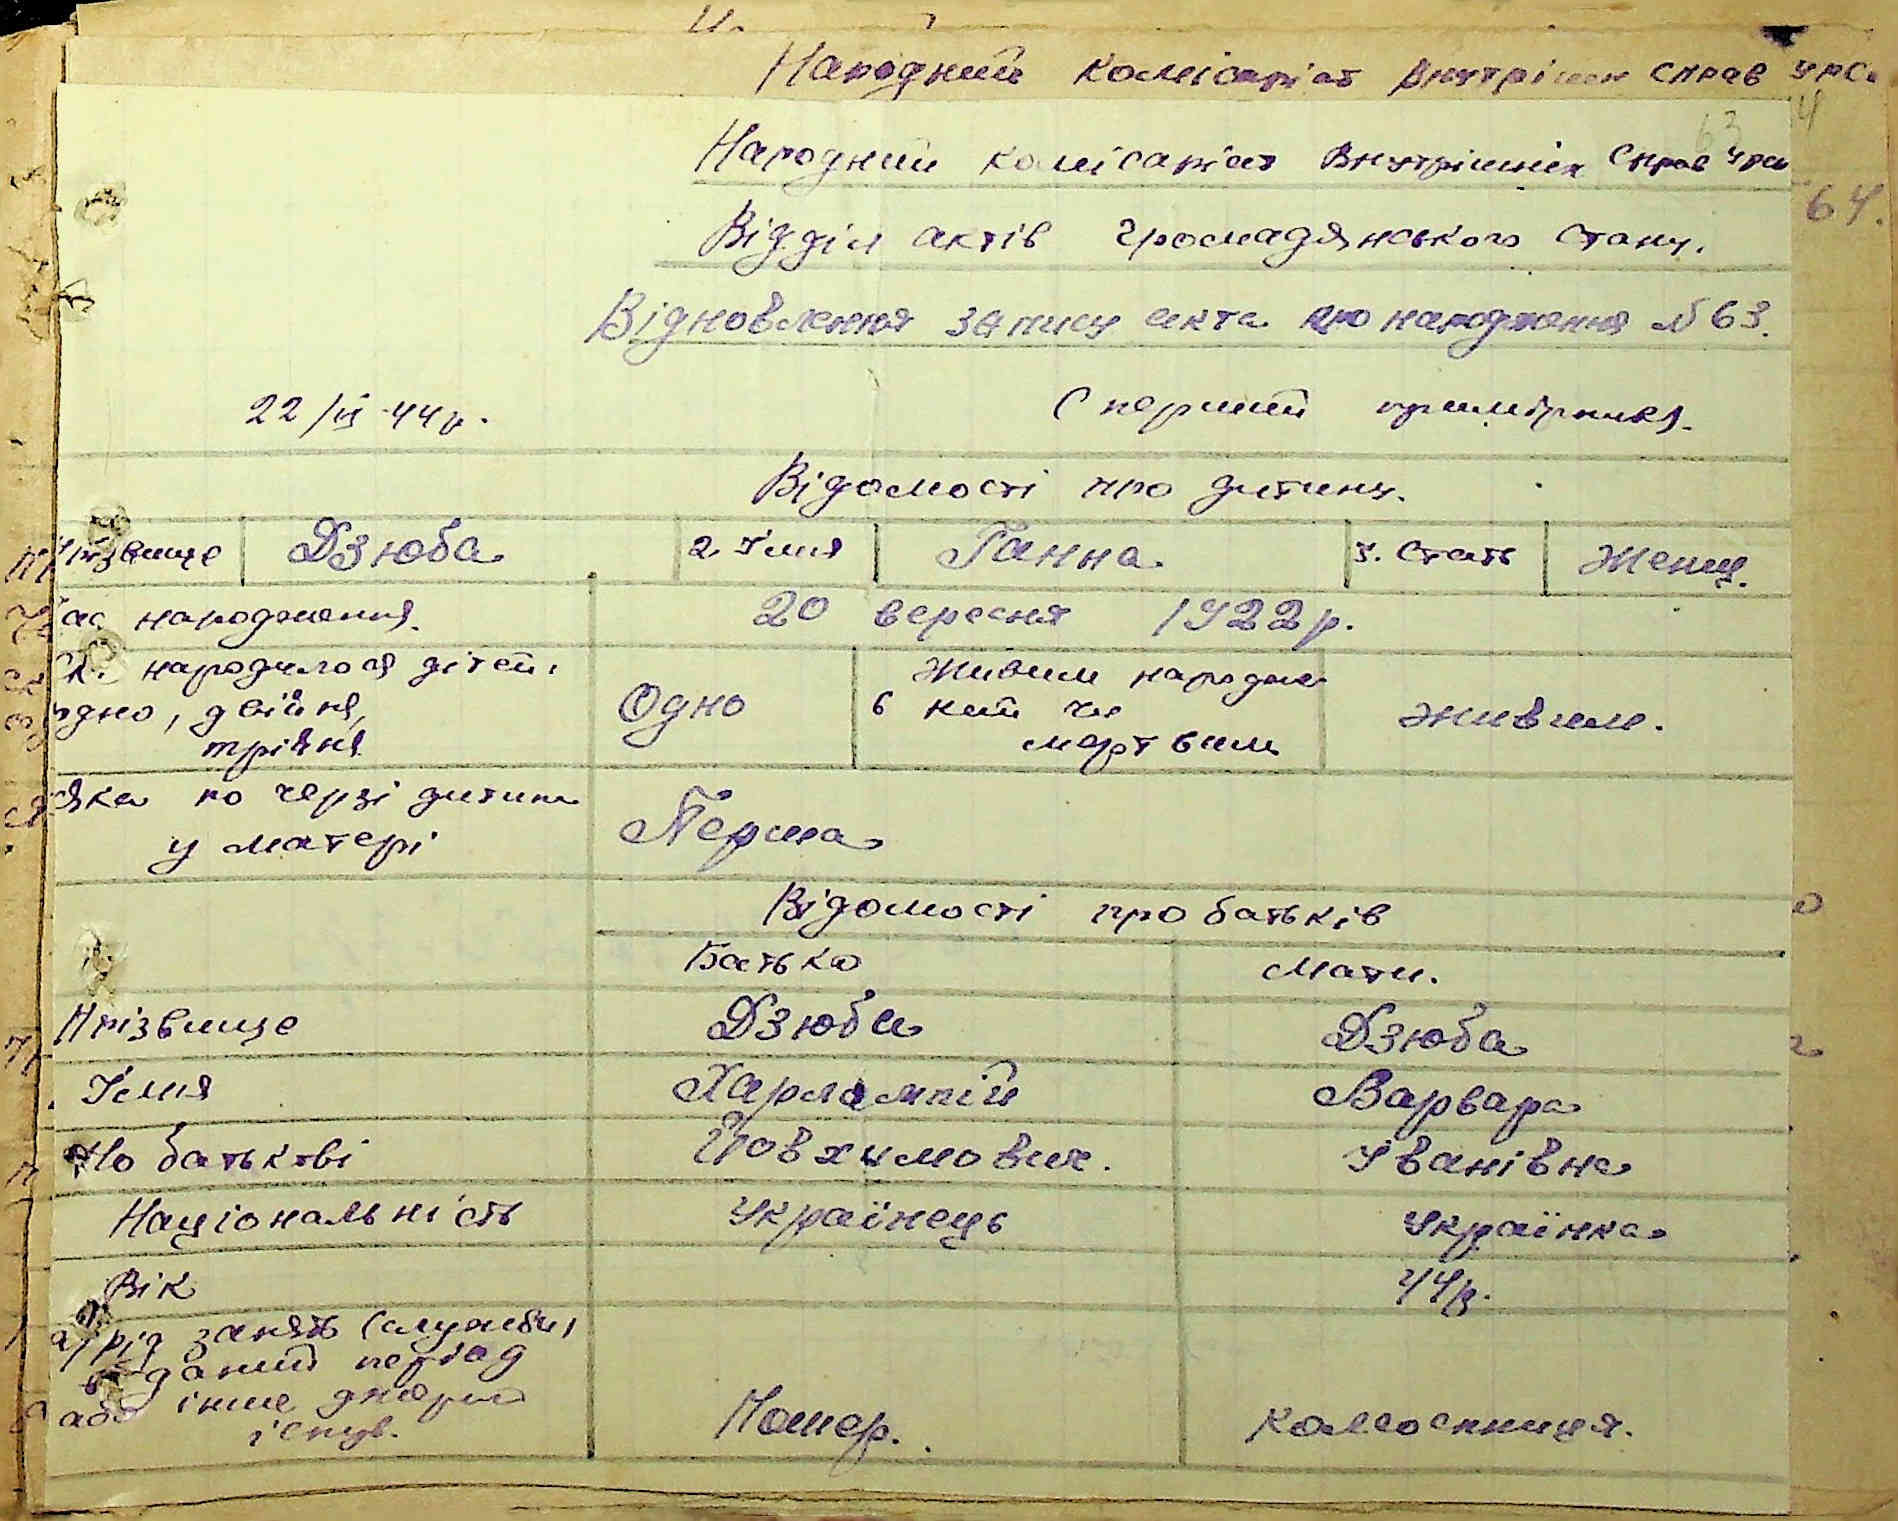 Народний Комісаріат Внутрішн справ УРС
63
Народний комісаріат Внутрішніх Справ Урси
64.
Відділ актів громадянського стану.
Відновлення запису акта про народження N 63.
22/ІІІ-44р.
(перший примірник).
Відомості про дитину.
Прізвище Дзюба 2. Імия Ганна 3. Стать Женщ.
час народження. 20 вересня 1922 р.
Ск. народилося дітей: Одно 6 Живим народже
одно, двійня, ний чи живим.
трійня мертвим
Яка по черзі дитина Перша
у матері
Відомості про батьків
Батько Мати.
Прізвище Дзюба Дзюба
Імия Харлампій Варвара
По батькові Йовхимович. Іванівна
Національність Українець Українка
Вік 44р.
а) рід занять (служби)
в даний період
або інше джерело
існув. Помер. Колгоспниця.